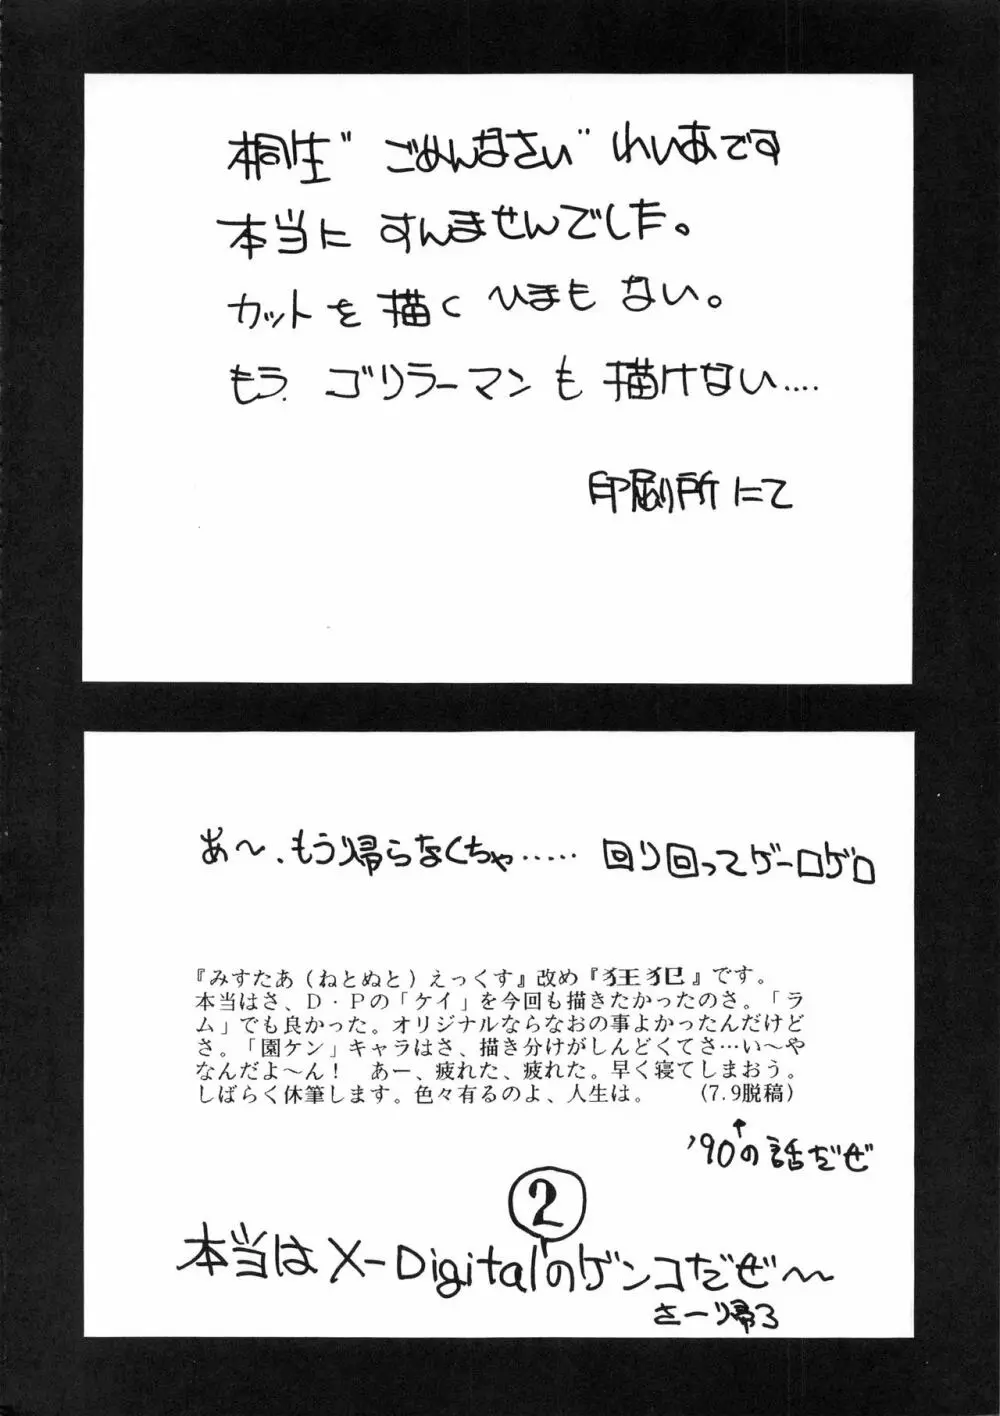 桐生"ごめんなさい"れいあです
本当に すんませんでした。
カットを描く ひまも ない。
もう ゴリラーマンも 描けない‥‥
印刷所にて
あ〜、もう帰らなくちゃ‥‥‥ 回り回ってゲーロゲロ
『みすたあ（ねとぬと）えっくす』改め『狂犯』です。
本当はさ、Ｄ・Ｐの「ケイ」を今回も描きたかったのさ。「ラ
ム」でも良かった。オリジナルならなおの事よかったんだけど
さ。「園ケン」キャラはさ、描き分けがしんどくてさ…い〜や
なんだよ〜ん！　あー、疲れた、疲れた。早く寝てしまおう。
しばらく休筆します。色々有るのよ、人生は。　（7.9脱稿）
'90の話だぜ
2
本当はX-Digitalのゲンコだぜ〜
さーり帰ろ